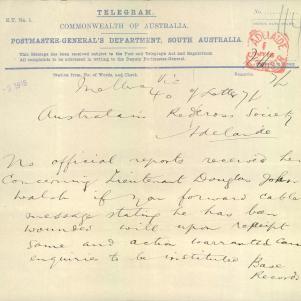 TELEGRAM.
COMMONWEALTH OF AUSTRALIA.
POSTMASTER-GENERAL'S DEPARTMENT, SOUTH AUSTRALIA.
This Message has been received subject to the Post and Telegraph Act and Regulations.
All complaints to be addressed in writing to the Deputy Postmaster-General.
Station from, No. of Words, and Check.
Remarks.
ADELAIDE
Australian Red Cross Society
Adelaide
No official reports received here
Concerning Lieutenant Douglas John
walsh if you forward cable
message stating he has been
wounded will upon receipt
same and action warranted cause
enquiries to be instituted Base
Records